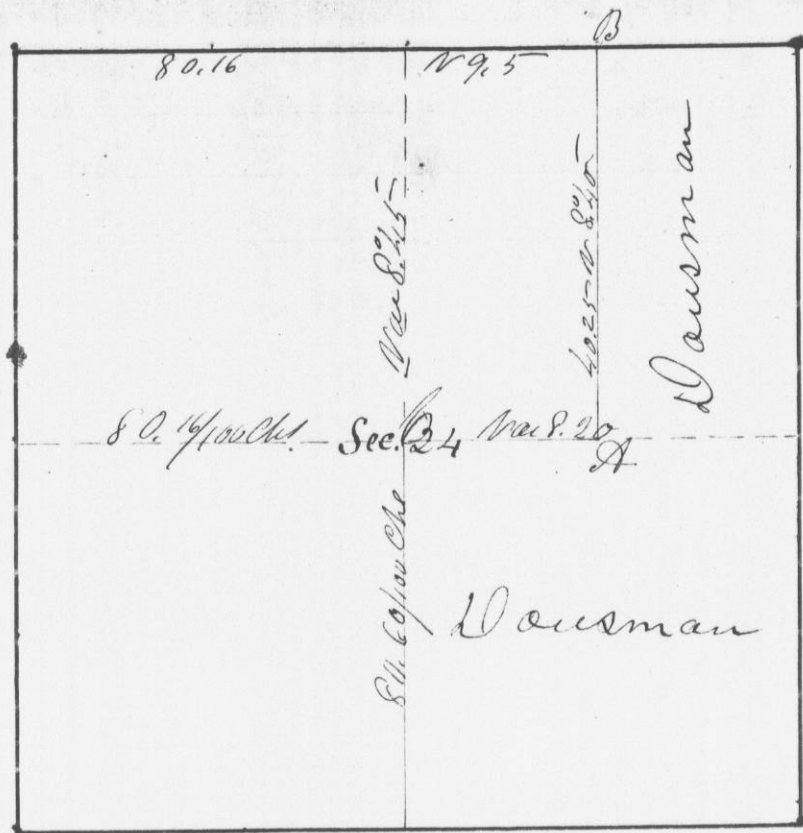 B
80.16 V 9.5
Var 8.45
40.25 V 8.40
Dousman
80. 16/100 Chs. Sec. 24 Var 8.20
A
60/100 Chs
Dousman